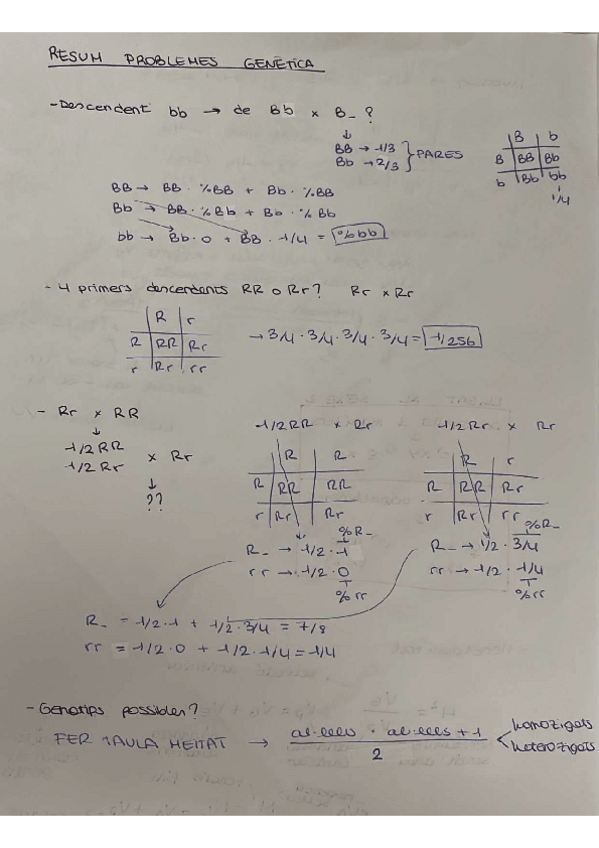 RESUM PROBLEMES GENÈTICA
- Descendent bb → de Bb x B_ ?
↓
BB → 1/3
Bb → 2/3 } PARES
B | b
B | BB | Bb
b | Bb | bb
1/4
BB → BB · %BB + Bb · %BB
Bb → BB · %Bb + Bb · %Bb
bb → Bb · 0 + BB · 1/4 = %bb
- 4 primers descendents RR o Rr? Rr x Rr
R | r
R | RR | Rr
r | Rr | rr
→ 3/4 · 3/4 · 3/4 · 3/4 = 1/256
- Rr x RR
↓
1/2 RR
1/2 Rr x Rr
↓
??
1/2 RR x Rr
R | R
R | RR | RR
r | Rr | Rr
%R_
R_ → 1/2 · 1
rr → 1/2 · 0
%rr
1/2 Rr x Rr
R | r
R | RR | Rr
r | Rr | rr
%R_
R_ → 1/2 · 3/4
rr → 1/2 · 1/4
%rr
R_ = 1/2 · 1 + 1/2 · 3/4 = 7/8
rr = 1/2 · 0 + 1/2 · 1/4 = 1/4
- Genotips possibles?
FER TAULA MEITAT → al·lels · al·lels + 1 / 2 < homozigots
heterozigots